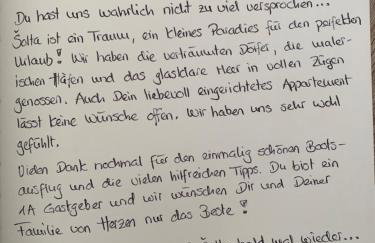 Du hast uns wahrlich nicht zu viel versprochen...
Šolta ist ein Traum, ein kleines Paradies für den perfekten
Urlaub! Wir haben die verträumten Dörfer, die maler-
ischen Häfen und das glasklare Meer in vollen Zügen
genossen. Auch Dein liebevoll eingerichtetes Appartement
lässt keine Wünsche offen. Wir haben uns sehr wohl
gefühlt.
Vielen Dank nochmal für den einmalig schönen Boots-
ausflug und die vielen hilfreichen Tipps. Du bist ein
1A Gastgeber und wir wünschen Dir und Deiner
Familie von Herzen nur das Beste!
bald mal wieder...